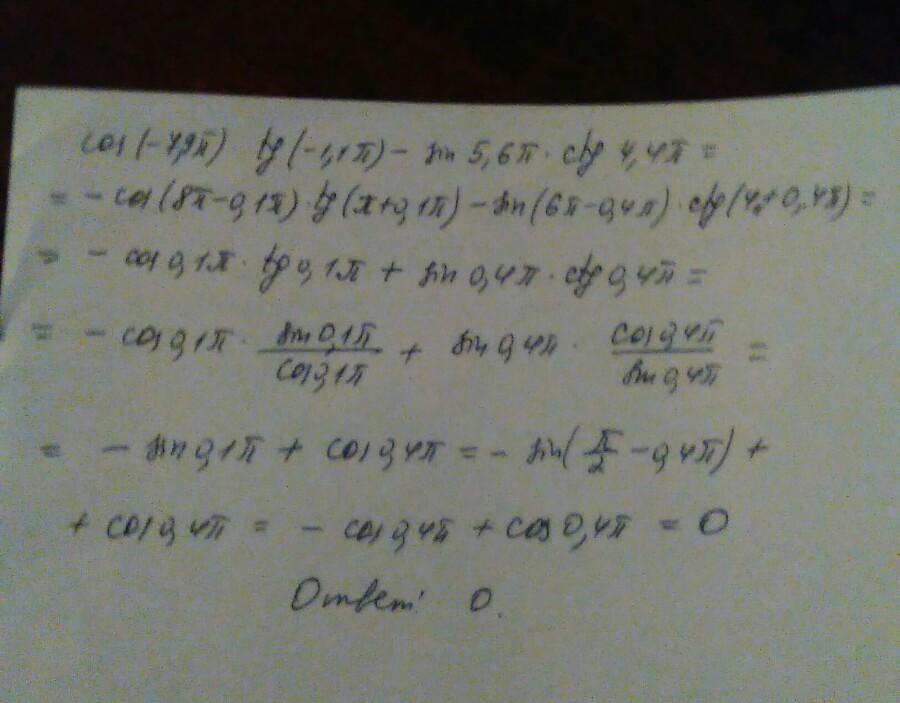 cos(-7,9π) tg(-1,1π) - sin 5,6π · ctg 4,4π =
= - cos(8π-0,1π) · tg(π+0,1π) - sin(6π-0,4π) · ctg(4π+0,4π) =
= - cos 0,1π · tg 0,1π + sin 0,4π · ctg 0,4π =
= - cos 0,1π · sin 0,1π / cos 0,1π + sin 0,4π · cos 0,4π / sin 0,4π =
= - sin 0,1π + cos 0,4π = - sin(π/2 - 0,4π) +
+ cos 0,4π = - cos 0,4π + cos 0,4π = 0
Ответ: 0.